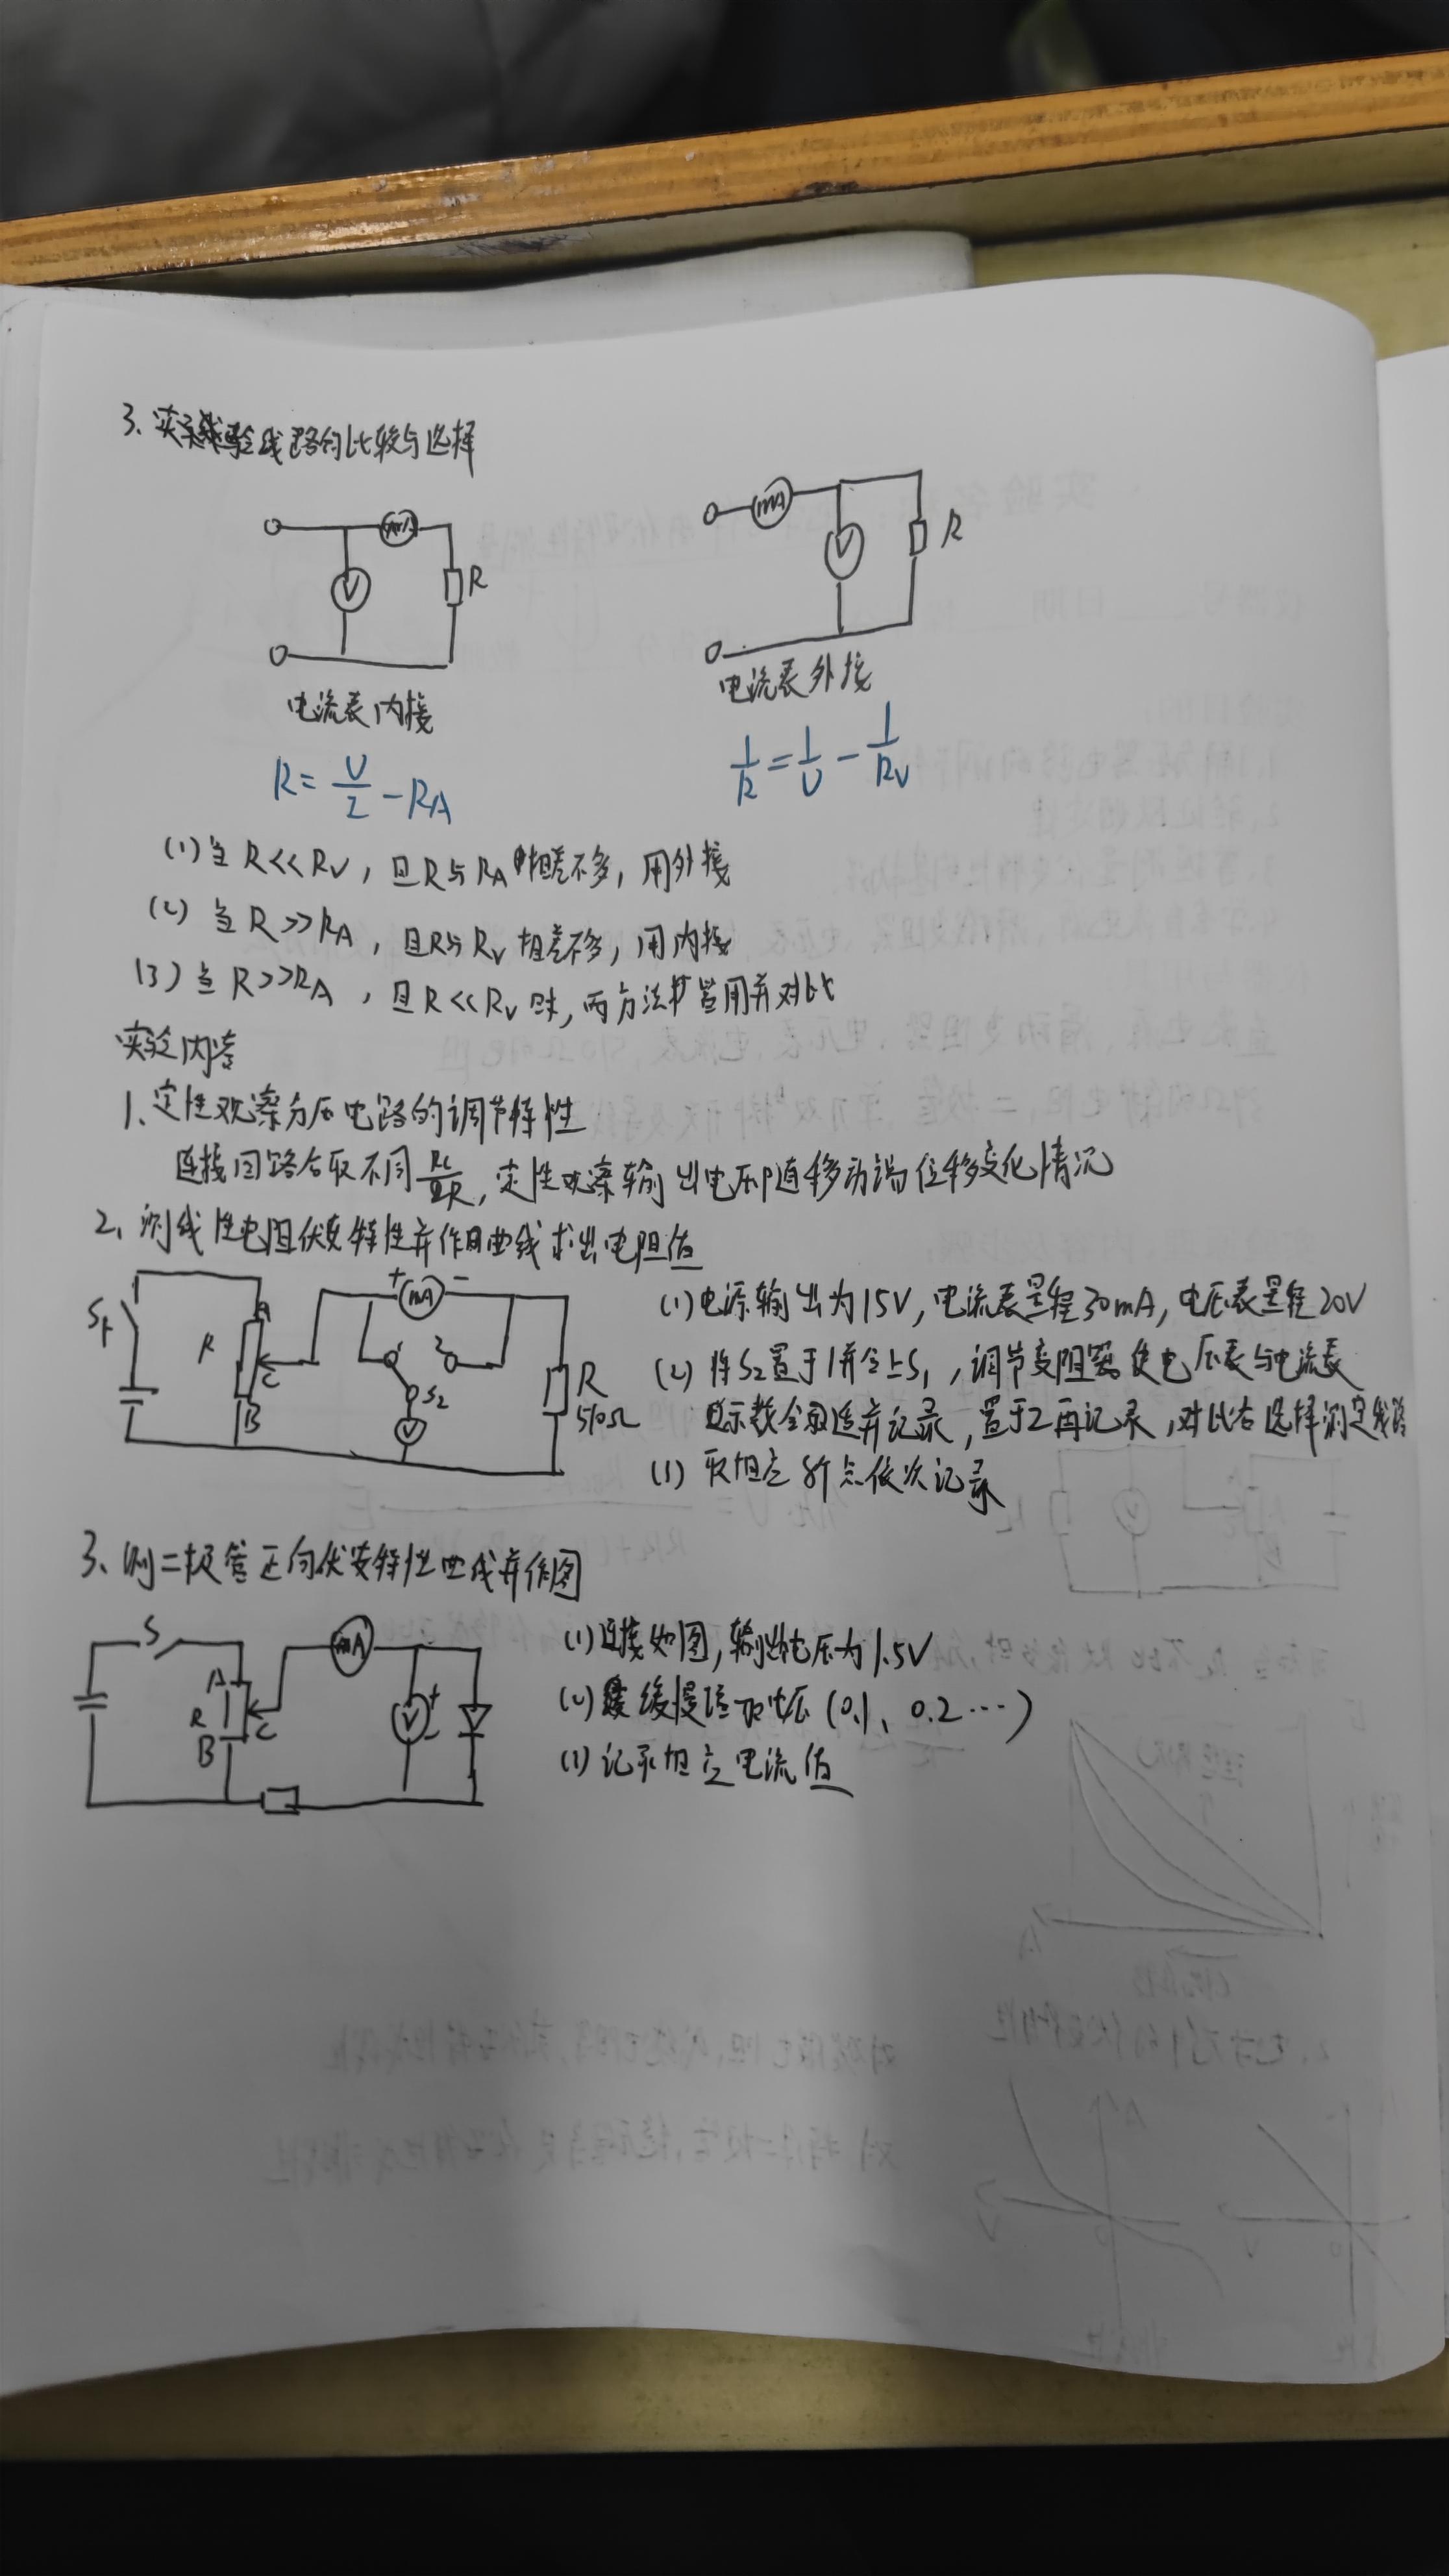 3、实验线路的比较与选择
mA
V
R
mA
V
R
电流表内接
电流表外接
R = U/I - RA
1/R = I/U - 1/RV
(1) 当 R<<RV, 且R与RA相差不多, 用外接
(2) 当 R>>RA, 且R与RV相差不多, 用内接
(3) 当 R>>RA, 且R<<RV时, 两方法都置用并对比
实验内容
1、定性观察分压电路的调节特性
连接回路后取不同, 定性观察输出电压随移动端位移变化情况
2、测线性电阻伏安特性并作曲线求出电阻值
S1
R
A
C
B
+ mA -
1
2
S2
V
R
510Ω
(1) 电源输出为15V, 电流表量程30mA, 电压表量程20V
(2) 将S2置于1并合上S1, 调节变阻器使电压表与电流表
示数合适并记录, 置于2再记录, 对比后选择测定线路
(3) 取相应 8个点依次记录
3、测二极管正向伏安特性曲线并作图
S
A
R
B
C
mA
V
+
-
(1) 连接如图, 输出电压为1.5V
(2) 缓慢增加电压 (0.1、0.2…)
(3) 记录相应电流值